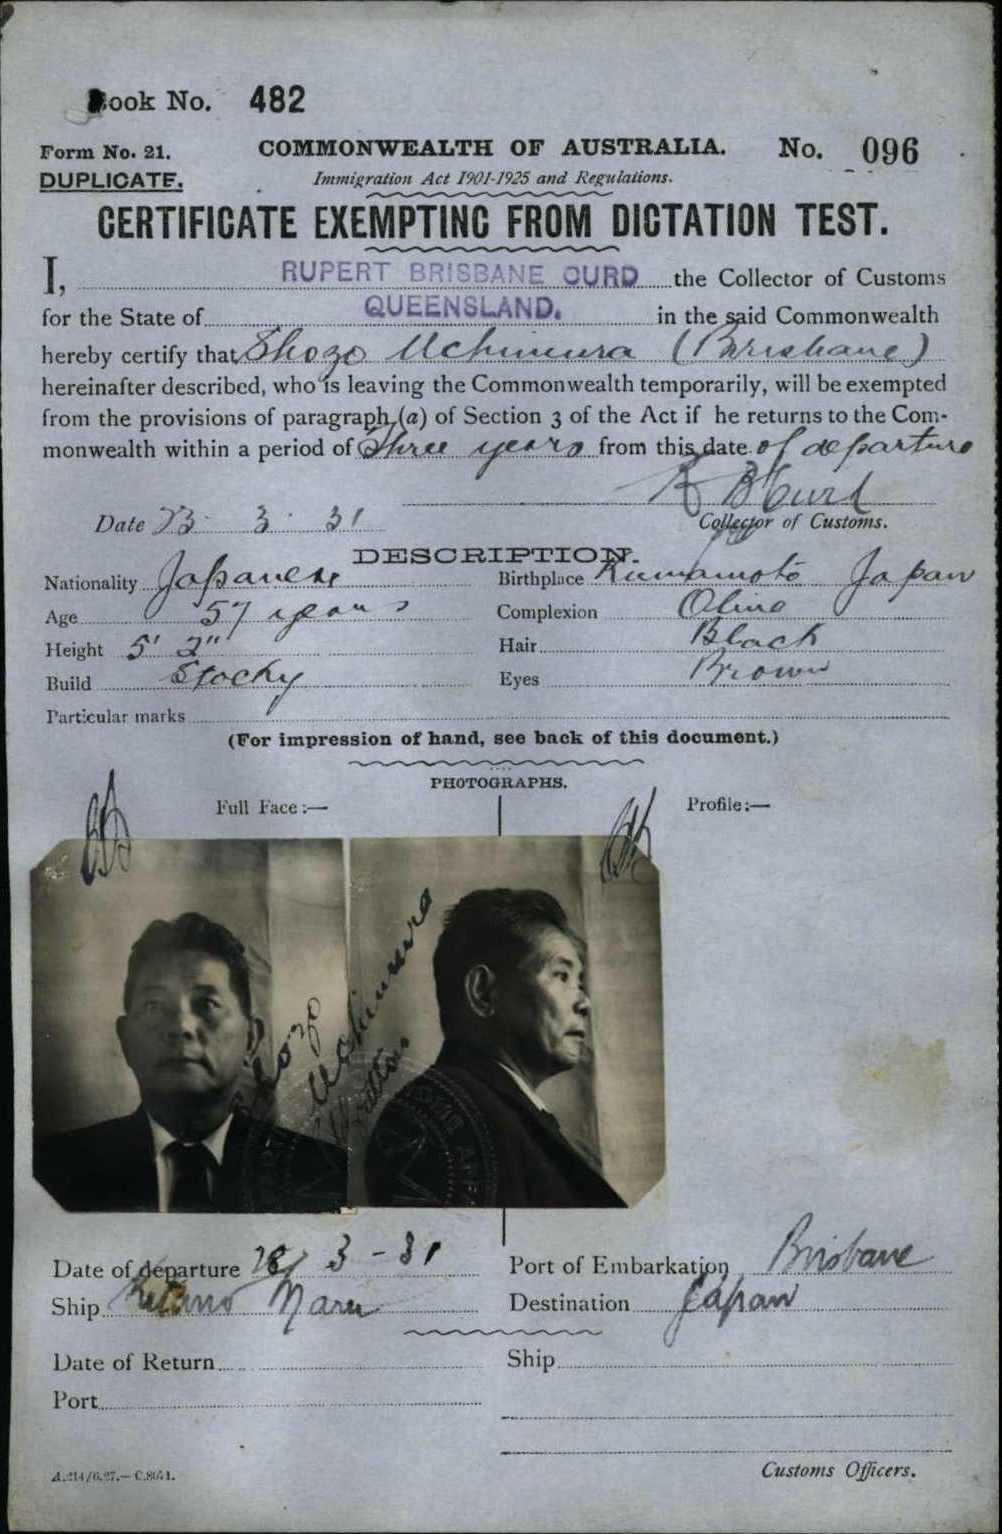 Book No. 482
Form No. 21. COMMONWEALTH OF AUSTRALIA. No. 096
DUPLICATE. Immigration Act 1901-1925 and Regulations.
CERTIFICATE EXEMPTING FROM DICTATION TEST.
I, RUPERT BRISBANE CURD the Collector of Customs
for the State of QUEENSLAND. in the said Commonwealth
hereby certify that Shozo Uchimura (Brisbane)
hereinafter described, who is leaving the Commonwealth temporarily, will be exempted
from the provisions of paragraph (a) of Section 3 of the Act if he returns to the Com-
monwealth within a period of Three years from this date of departure
R B Curd
Date 23. 3. 31 Collector of Customs.
DESCRIPTION.
Nationality Japanese Birthplace Kumamoto Japan
Age 57 years Complexion Olive
Height 5' 2" Hair Black
Build Stocky Eyes Brown
Particular marks
(For impression of hand, see back of this document.)
PHOTOGRAPHS.
Full Face:— Profile:—
Shozo
Uchimura
Date of departure 28/3-31 Port of Embarkation Brisbane
Ship Kitano Maru Destination Japan
Date of Return Ship
Port
A.214/6.27.—C.8051. Customs Officers.